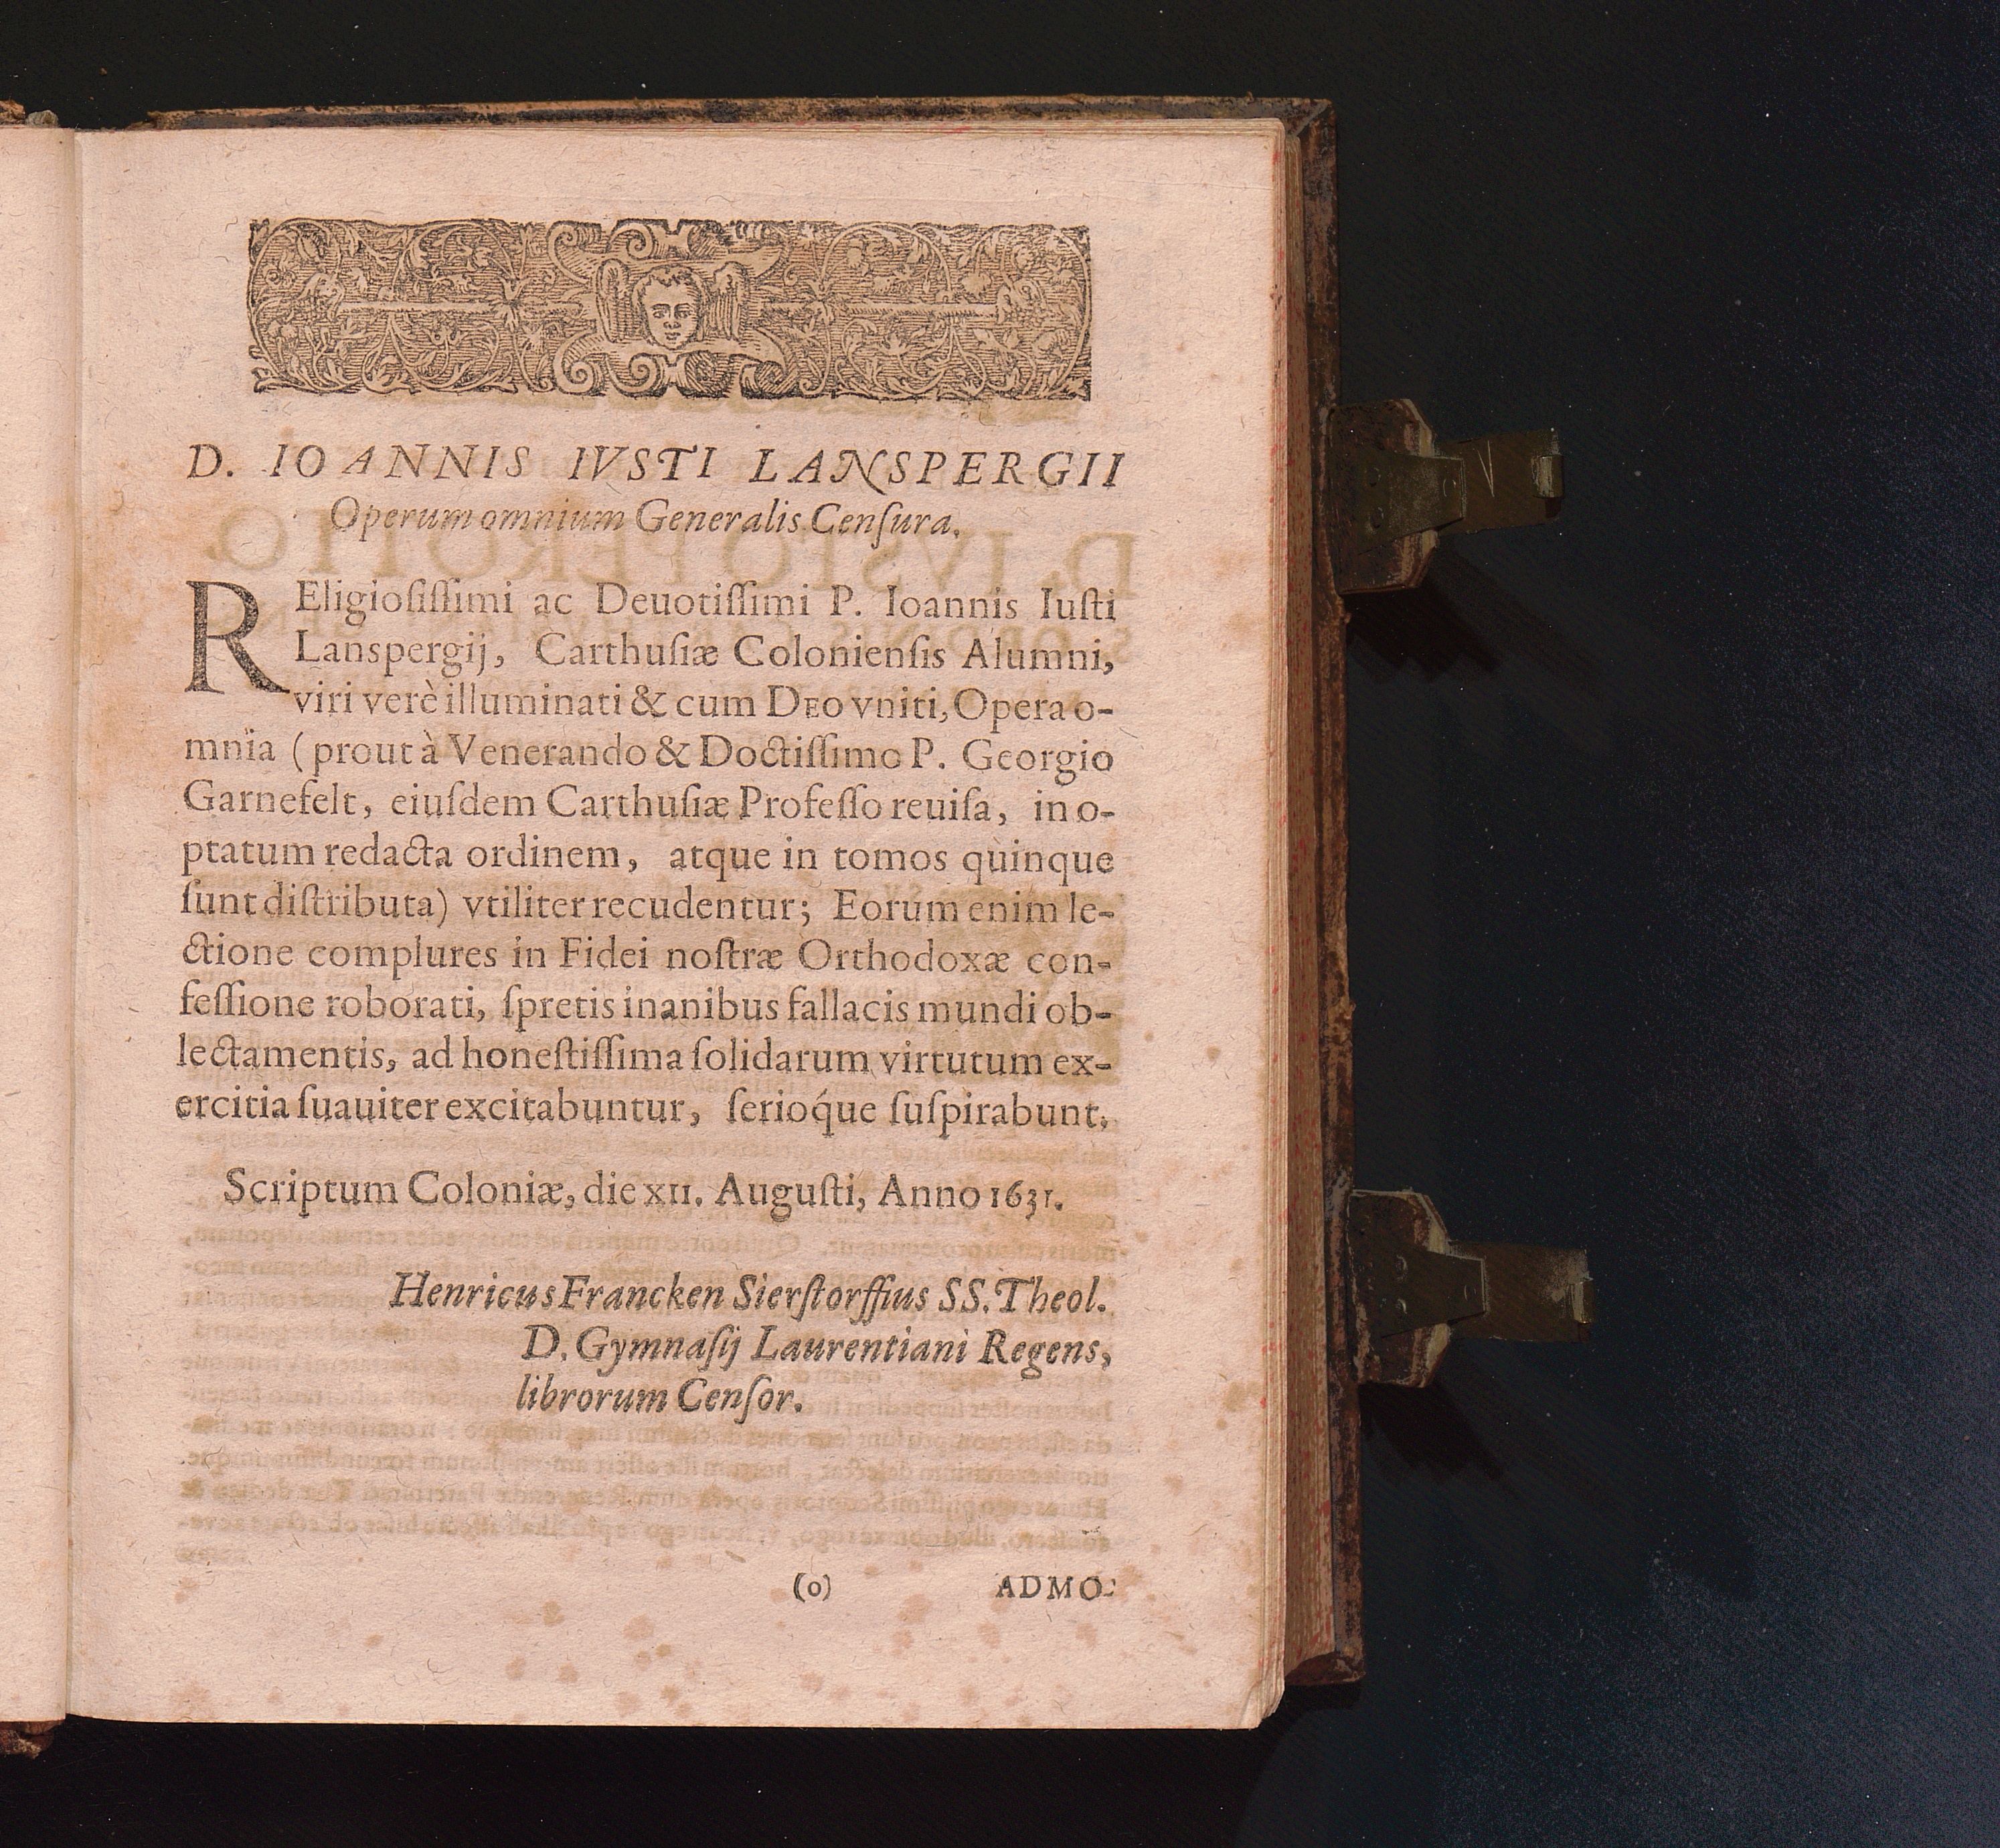 D. IOANNIS IVSTI LANSPERGII
Operum omnium Generalis Cenſura.
REligioſiſſimi ac Deuotiſſimi P. Ioannis Iuſti
Lanspergij, Carthuſiæ Colonienſis Alumni,
viri verè illuminati & cum DEO vniti, Opera o-
mnia (prout à Venerando & Doctiſſimo P. Georgio
Garnefelt, eiuſdem Carthuſiæ Profeſſo reuiſa, in o-
ptatum redacta ordinem, atque in tomos quinque
ſunt diſtributa) vtiliter recudentur; Eorum enim le-
ctione complures in Fidei noſtræ Orthodoxæ con-
feſſione roborati, ſpretis inanibus fallacis mundi ob-
lectamentis, ad honeſtiſſima ſolidarum virtutum ex-
ercitia ſuauiter excitabuntur, ſerioq́ue ſuſpirabunt.
Scriptum Coloniæ, die XII. Auguſti, Anno 1631.
Henricus Francken Sierſtorffius SS. Theol.
D. Gymnaſij Laurentiani Regens,
librorum Cenſor.
(o) ADMO-